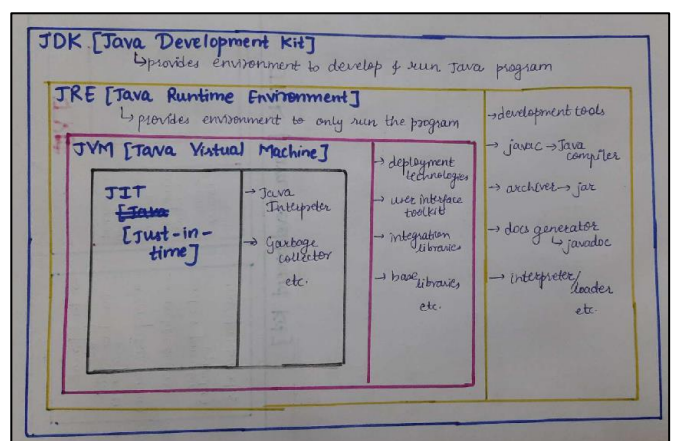 JDK [Java Development Kit]
↳provides environment to develop & run Java program
JRE [Java Runtime Environment]
↳ provides environment to only run the program
JVM [Java Virtual Machine]
JIT
[Java
[Just-in-
time]
→ Java
Interpreter
→ Garbage
collector
etc.
→ deployment
technologies
→ user interface
toolkit
→ integration
libraries
→ base libraries
etc.
→development tools
→ javac → Java
compiler
→ archiver → jar
→ docs generator
↳ javadoc
→ interpreter/
loader
etc.